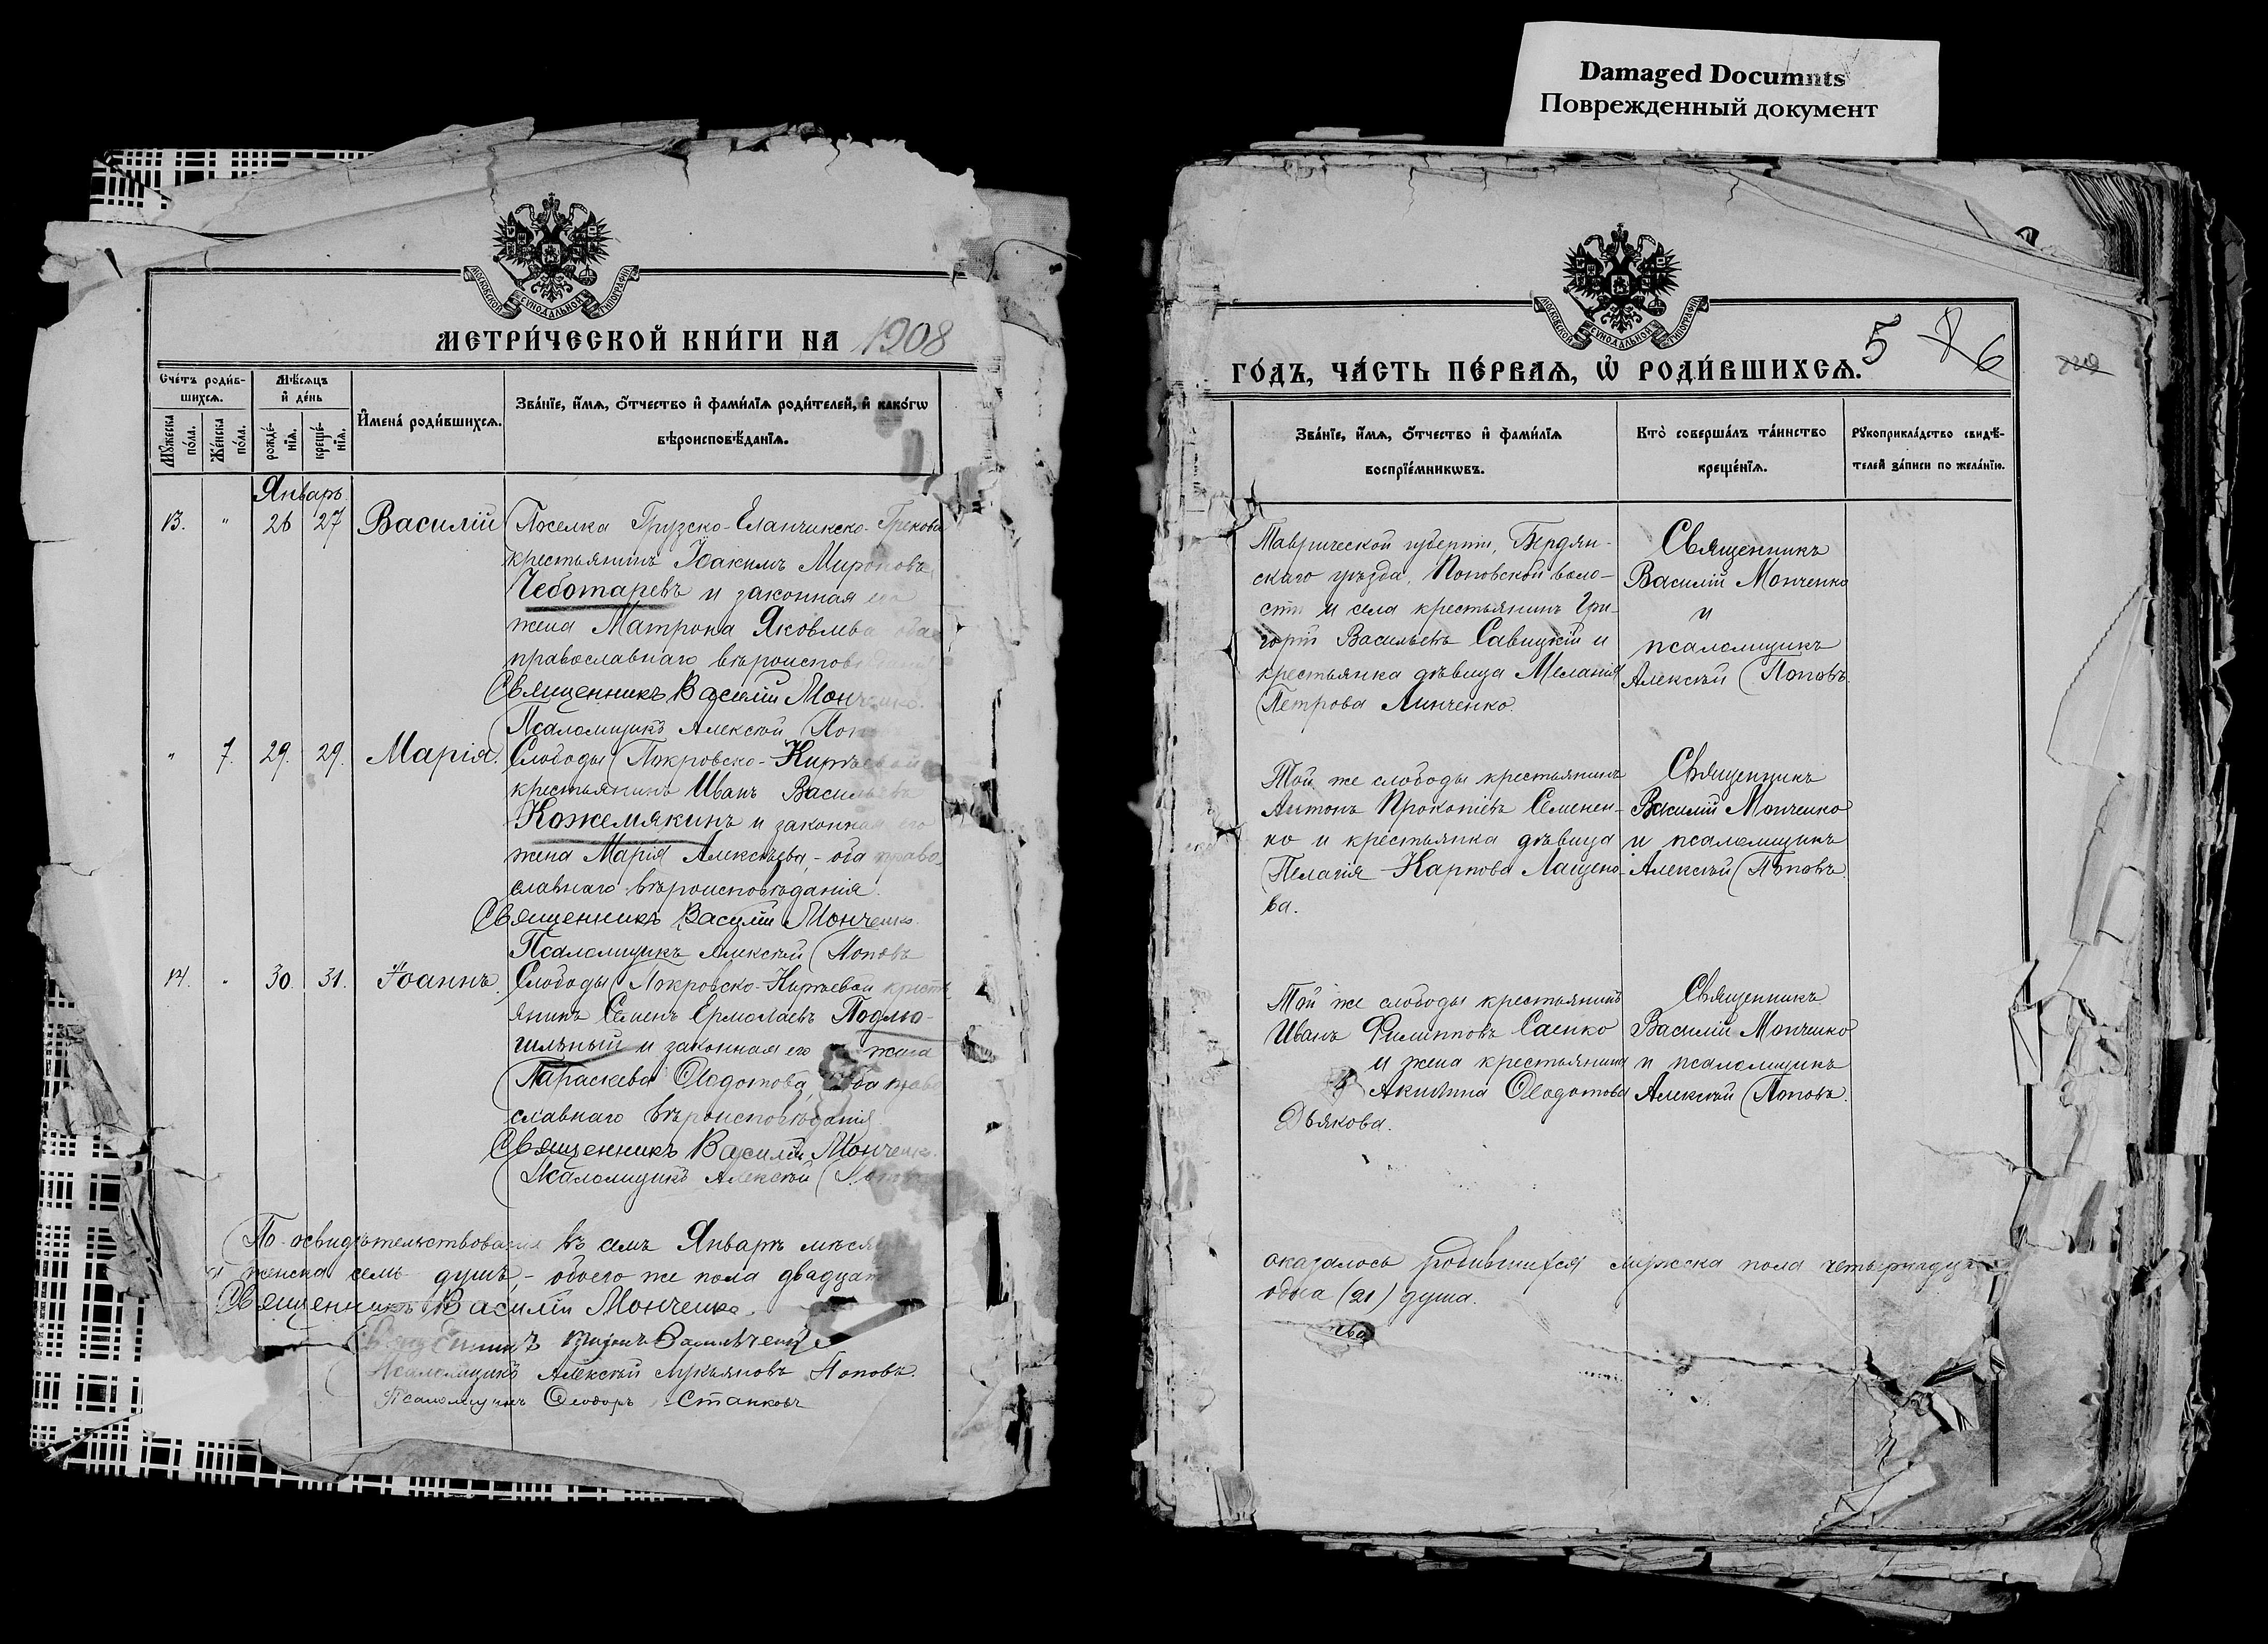 Damaged Documnts
Поврежденный документ
МОСКОВСКОЙ СѴНОДАЛЬНОЙ ТИПОГРАФІИ
МЕТРИ́ЧЕСКОЙ КНИ́ГИ НА 1908
Сче́тъ роди́вшихсѧ.
Мꙋ́жеска по́ла.
Же́нска по́ла.
Мѣ́сѧцъ и҆ де́нь
рожде́нїѧ.
креще́нїѧ.
И҆мена̀ роди́вшихсѧ.
Зва́нїе, и҆́мѧ, ѻ҆́тчество и҆ фами́лїѧ роди́телей, и҆ како́гѡ
вѣроисповѣ́данїѧ.
Январь.
13. " 26 27 Василій Поселка Грузско-Еланчикско-Грекова
крестьянинъ Іоакимъ Мироновъ
Чеботаревъ и законная его
жена Матрона Яковлева оба
православнаго вѣроисповѣданія
Священникъ Василій Монченко.
Псаломщикъ Алексѣй Поповъ
" 7. 29. 29. Марія. Слободы Покровско-Кирѣевой
крестьянинъ Иванъ Васильевъ
Кожемякинъ и законная его
жена Марія Алексѣева, - оба право-
славнаго вѣроисповѣданія.
Священникъ Василій Монченко.
Псаломщикъ Алексѣй Поповъ
14. " 30. 31. Іоаннъ. Слободы Покровско-Кирѣевой крестья
янинъ Семенъ Ермолаевъ Подлю-
и законная его жена
Параскева Ѳедотова, оба право
славнаго вѣроисповѣданія.
Священникъ Василій Монченко.
Псаломщикъ Алексѣй Поповъ
По освидѣтельствованіи въ семъ Январѣ мѣсяцѣ
и женска семь душъ, - обоего же пола двадцать
Священникъ Василій Монченко.
Священникъ
Псаломщикъ Алексѣй Лукьяновъ Поповъ.
Псаломщикъ Ѳеодоръ Станковъ
МОСКОВСКОЙ СѴНОДАЛЬНОЙ ТИПОГРАФІИ
ГО́ДЪ, ЧА́СТЬ ПЕ́РВАѦ, Ѡ҆ РОДИ́ВШИХСѦ. 5 6
Зва́нїе, и҆́мѧ, ѻ҆́тчество и҆ фами́лїѧ
воспрїе́мникѡвъ.
Кто̀ соверша́лъ та́инство
креще́нїѧ.
Рꙋкоприкла́дство свидѣ́-
телей за́писи по жела́нїю.
Таврической губерніи, Бердян-
скаго уѣзда, Поповской воло-
сти и села крестьянинъ Гри-
горій Васильевъ Савицкій и
крестьянка дѣвица Меланія
Петрова Линченко.
Священникъ
Василій Монченко
и
псаломщикъ
Алексѣй Поповъ.
Той же слободы крестьянинъ
Антонъ Прокопіевъ Семенен-
ко и крестьянка дѣвица
Пелагія Карпова Лащено-
ва.
Священникъ
Василій Монченко
и псаломщикъ
Алексѣй Поповъ.
Той же слободы крестьянинъ
Иванъ Филипповъ Саенко
и жена крестьянина
Акилина Ѳедотова
Дьякова.
Священникъ
Василій Монченко
и псаломщикъ
Алексѣй Поповъ.
оказалось родившихся мужска пола четырнадцать
одна (21) душа.